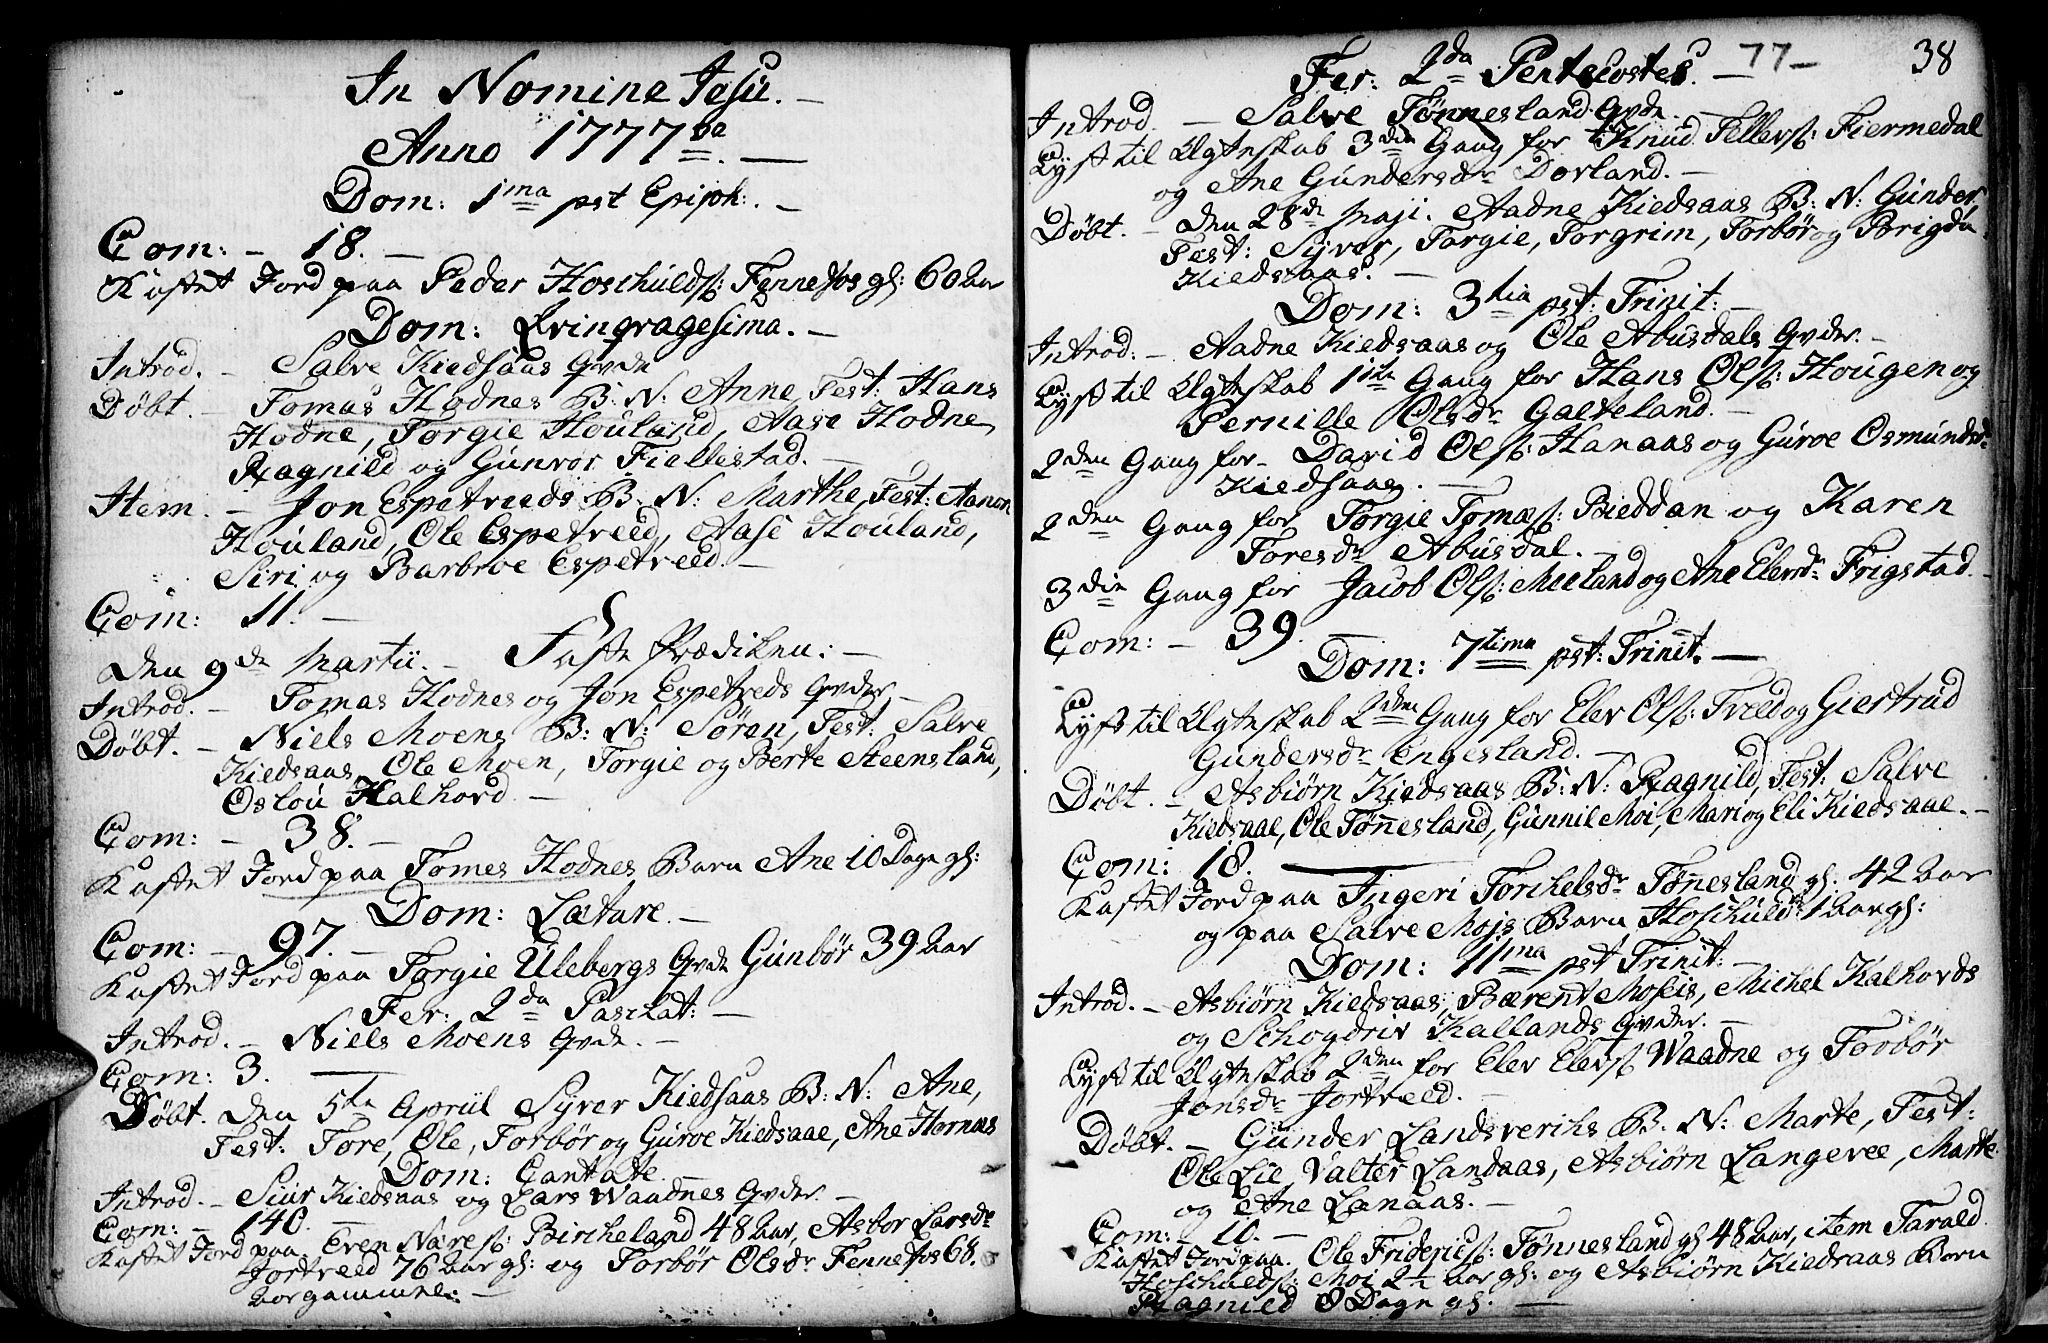 In Nomine Jesu. —
Anno 1777ma. —
Dom: 1ma pst Epiph: —
Com: — 18. —
Kastet Jord paa Peder Hoschuldsß: Fennefos gl: 60 Aar
Dom: Qvinqvagesima. —
Introd. — Salve Kiedsaas Qvde
Döbt. — Tomas Hodnes B: N: Anne, Test: Hans
Hodne, Torgie Houland, Aase Hodne,
Ragnild og Gunvor Fiellestad. —
Item. — Jon Espetreeds B: N: Marthe, Test: Aanon
Houland, Ole Espetreed, Aase Houland,
Siri og Barbroe Espetreed. —
Com: 11. —
Den 9de Martii. — Faste Prædiken: —
Introd. — Tomas Hodnes og Jon Espetreds Qvder —
Döbt. — Niels Moens B: N: Sören, Test: Salve
Kiedsaas, Ole Moen, Torgie og Berte Steensland,
Oslou Kalhord. —
Com: — 38. —
Kastet Jord paa Tomes Hodnes Barn Ane 10 Dage gl:
Dom: Lætare. —
Com: — 97. —
Kastet Jord paa Torgie Ulebergs Qvde Gunbör 39 Aar
Fer: 2da Paschat: —
Introd. — Niels Moens Qvde. —
Com: 3. —
Döbt. Den 5te April Syver Kiedsaas B: N: Ane,
Test: Tore, Ole, Torbör og Guroe Kiedsaae, Ane Hornaas
Dom: Cantate.
Introd. — Siur Kiedsaas og Lars Waadnes Qvder. —
Com: — 140. —
Kastet Jord paa Even Næresß: Bircheland 48 Aar, Asbor Larsdr
Jortveed 76 Aar gl: og Torbör Olsdr Fennefos 68.
Aar gammel: —
Fer: 2da Pentecostes. — 77 — 38
Introd. — Salve Tönnesland Qvde. —
Lyst til Ægteskab 3die Gang for Knud Tellevsß: Fiermedal
og Ane Gundersdr Dovland. —
Döbt. — Den 28de Maji. Aadne Kiedsaas B: N: Gunder,
Test: Syver, Torgie, Torgrim, Torbör og Brigdu
Kiedsaas. —
Dom: 3tia pst: Trinit: —
Introd: — Aadne Kiedsaas og Ole Abusdals Qvder. —
Lyst til Ægteskab 1ste Gang for Hans Olsß: Hougen og
Pernille Olsdr Galteland. —
2den Gang for — David Olsß: Hanaas og Guroe Osmundsdr
Kiedsaas. —
2den Gang for Torgie Tomesß: Bieddan og Karen
Toresdr Abusdal. —
3die Gang for Jacob Olsß: Mieland og Ane Elevsdr Frigstad. —
Com: — 39.
Dom: 7tima pst: Trinit. —
Lyst til Ægteskab 2den Gang for Elev Olsß: Treed og Giertrud
Gundersdr Engesland. —
Döbt. — Asbiörn Kiedsaas B: N: Ragnild, Test: Salve
Kiedsaae, Ole Tönnesland, Gunnil Moi, Mari og Eli Kiedsaae. —
Com: 18. —
Kastet Jord paa Ingeri Torchelsdr Tönnesland gl: 42 Aar
og paa Salve Mojs Barn Hoschuld 1 Aar gl:
Dom: 11ma pst Trinit: —
Introd. — Asbiörn Kiedsaas, Bærent Moseis, Michel Kalhovds
og Schogdriv Kallands Qvder. —
Lyst til Ægteskab 2den for Elev Elevsß Waadne og Torbör
Jonsdr Jortveed. —
Döbt. — Gunder Landsverchs B: N: Marte, Test:
Ole Lie, Valter Landaas, Asbiörn Langevee, Marte
og Ane Lanaas. —
Com: 10. —
Kastet Jord paa Ole Fridericsß: Tönnesland gl 48 Aar, item Tarald
Hoschuldsß: Moi 2½ Aar gl: og Asbiörn Kiedsaas Barn
Ragnild 8 Dage gl: —